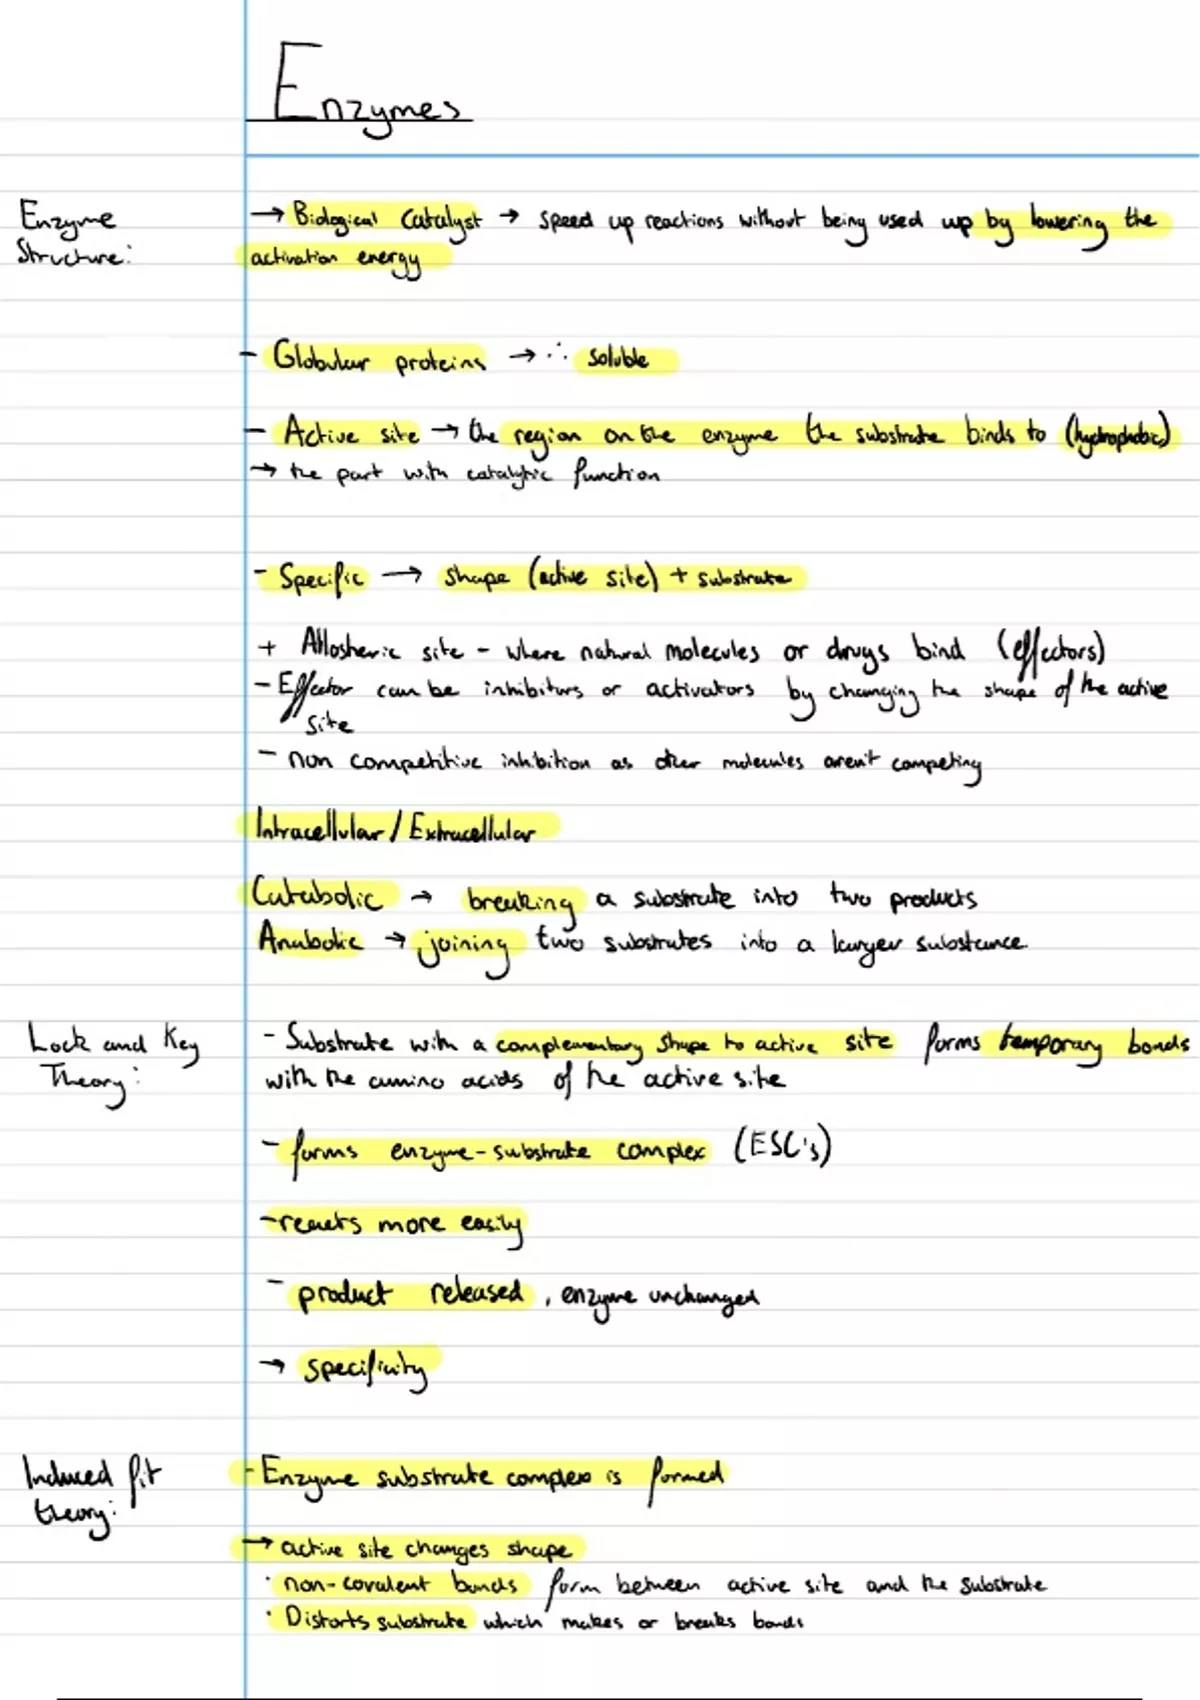 Enzymes
Enzyme
Structure:
→ Biological Catalyst → speed up reactions without being used up by lowering the
activation energy
- Globular proteins → ∴ soluble
- Active site → the region on the enzyme the substrate binds to (hydrophobic)
→ the part with catalytic function
- Specific → shape (active site) + substrate
+ Allosteric site - where natural molecules or drugs bind (effectors)
- Effector can be inhibitors or activators by changing the shape of the active
site
- non competitive inhibition as other molecules aren't competing
Intracellular / Extracellular
Catabolic → breaking a substrate into two products
Anabolic → joining two substrates into a larger substance
Lock and Key
Theory:
- Substrate with a complementary shape to active site forms temporary bonds
with the amino acids of the active site
- forms enzyme-substrate complex (ESC's)
- reacts more easily
- product released, enzyme unchanged
→ specificity
Induced fit
theory:
- Enzyme substrate complex is formed
→ active site changes shape
· non-covalent bonds form between active site and the substrate
· Distorts substrate which makes or breaks bonds